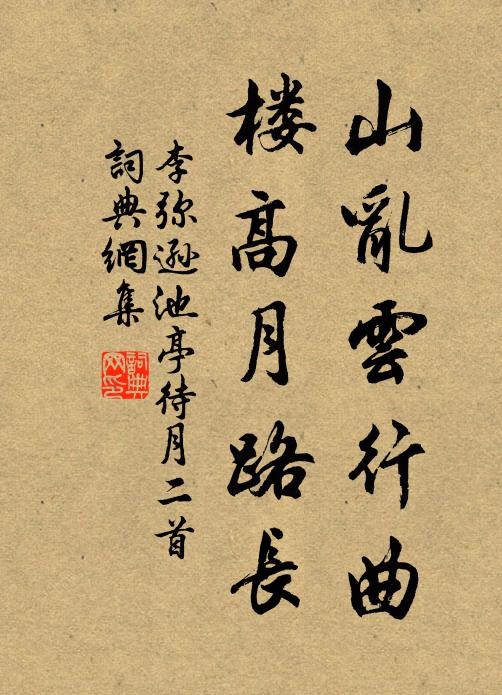 山亂雲行曲
楼高月路長
李弥遜池亭待月二首
詞典網集
詞典
网印